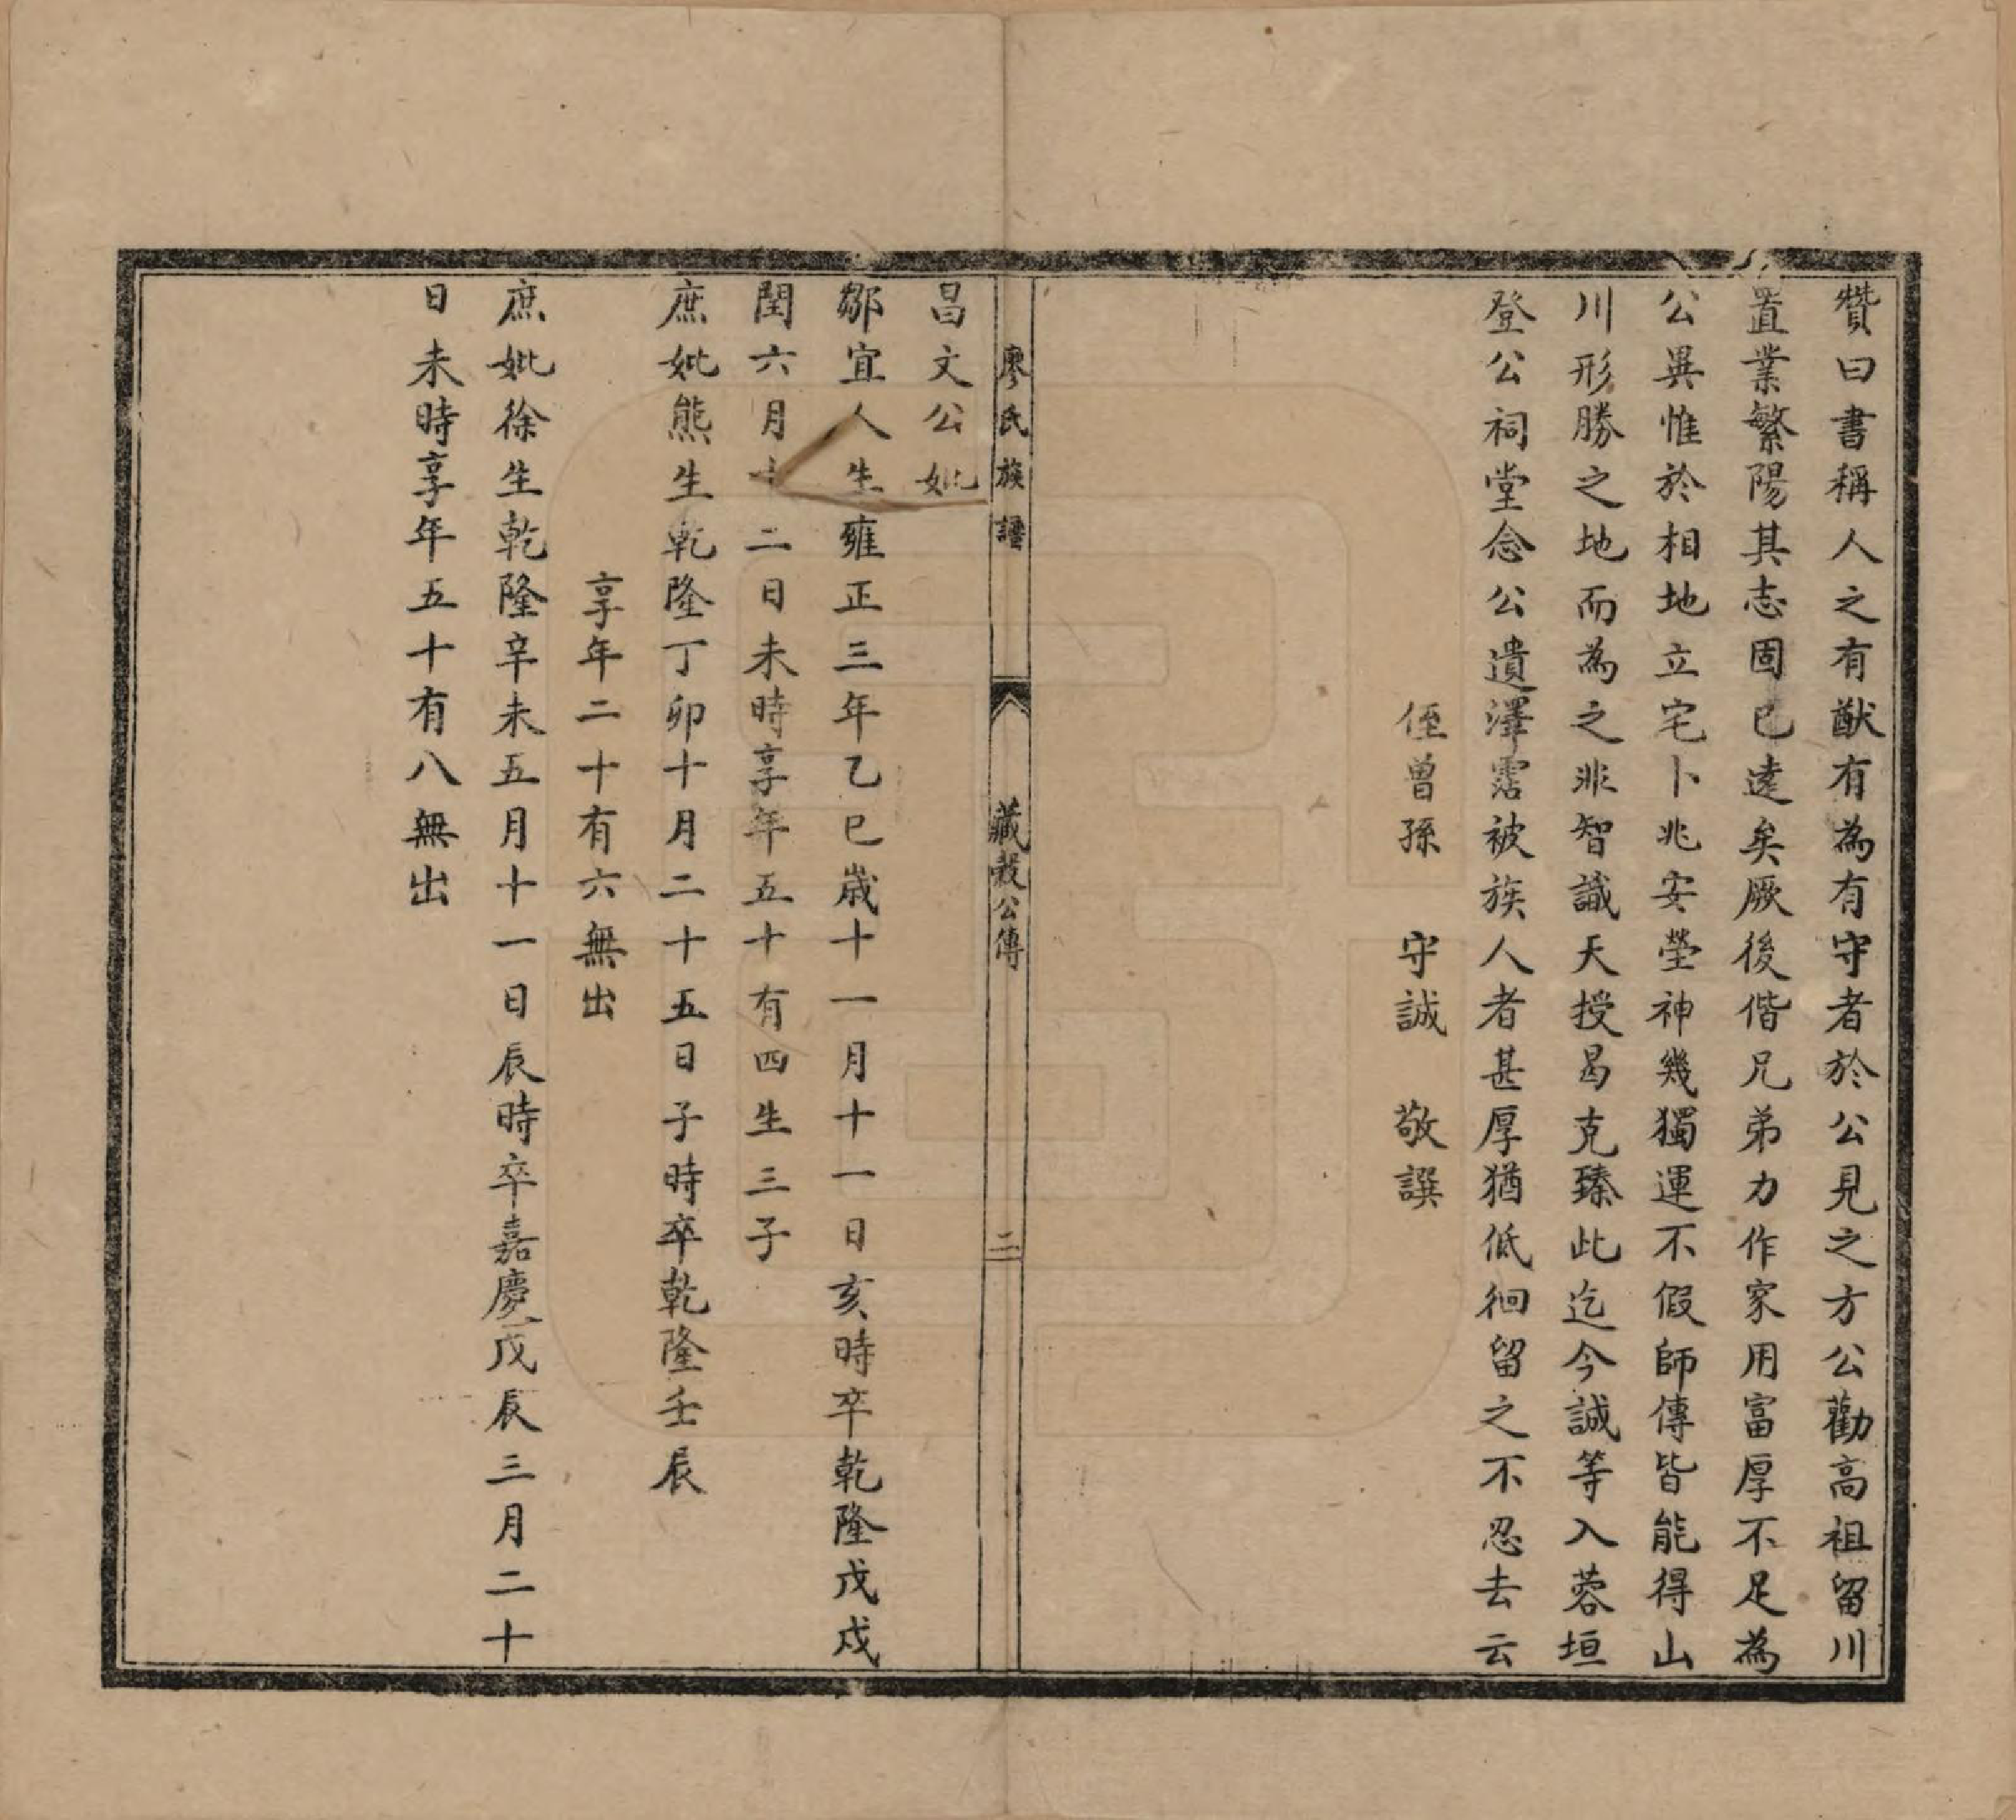 贊曰書稱人之有猷有為有守者於公見之方公勸高祖留川
置業繁陽其志固已遠矣厥後偕兄弟力作家用富厚不足為
公異惟於相地立宅卜兆安塋神幾獨運不假師傳皆能得山
川形勝之地而為之非智識天授曷克臻此迄今誠等入蓉垣
登公祠堂念公遺澤霑被族人者甚厚猶低徊留之不忍去云
侄曾孫　守誠　敬譔
廖氏族譜　藏穀公傳　二
昌文公妣
鄒宜人生雍正三年乙巳歲十一月十一日亥時卒乾隆戊戌
閏六月十二日未時享年五十有四生三子
庶妣熊生乾隆丁卯十月二十五日子時卒乾隆壬辰
享年二十有六無出
庶妣徐生乾隆辛未五月十一日辰時卒嘉慶戊辰三月二十
日未時享年五十有八無出